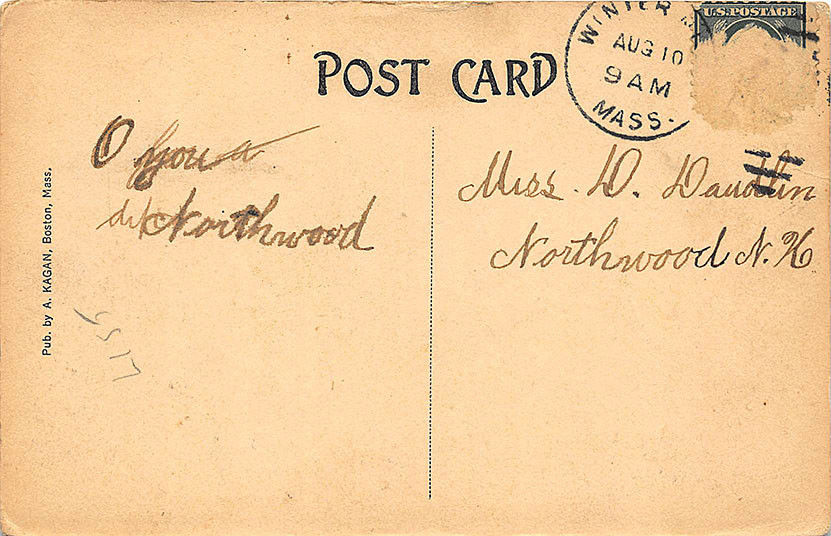 POST CARD
WINTER
AUG 10
9 AM
MASS.
U.S. POSTAGE
O you
Northwood
Miss. D. Daudlin
Northwood N. H
Pub. by A. KAGAN, Boston, Mass.